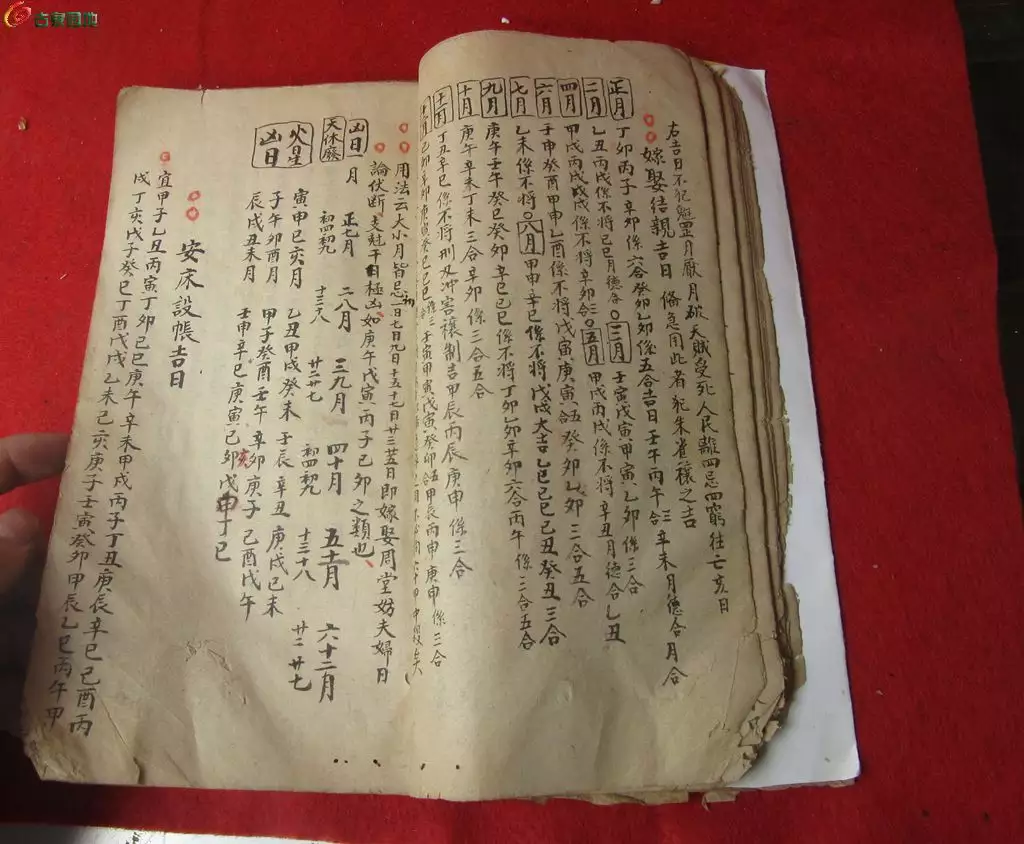 右吉日不犯魁罡月厭月破天賊受死人民離四忌四窮往亡亥日
嫁娶結親吉日 俻急用此者 犯朱雀禳之吉
正月 丁卯丙子辛卯係六合癸卯乙卯係五合吉日壬午丙午三合辛未月德合月合
二月 乙丑丙戌係不將己巳月德合○三月 壬寅戊寅甲寅乙卯係三合
四月 甲戌丙戌戊戌係不將辛卯合○五月 甲戌丙戌係不將辛丑月德合乙丑
六月 壬申癸酉甲申乙酉係不將戊寅庚寅五合癸卯乙卯三合五合
七月 乙未係不將○八月 甲申辛巳係不將戊戌大吉乙巳己巳己丑癸丑三合
九月 庚午壬午癸巳癸卯辛巳己巳係不將丁卯乙卯辛卯六合丙午係三合五合
十月 庚午辛未丁未三合辛卯係三合五合
丁丑辛巳係不將刑及冲害禳制吉甲辰丙辰庚申係三合
用法云大小月皆忌初一日七日九日十五十七日廿三廿五日即嫁娶周堂妨夫婦日
論伏断支尅干日極凶如庚午戊寅丙子己卯之類也
凶日一月 正七月 二八月 三九月 四十月 五十一月 六十二月
天休廢 初四初九 十三十八 廿二廿七 初四初九 十三十八 廿二廿七
火星凶日 寅申巳亥月 乙丑甲戌癸未壬辰辛丑庚戌己未
子午卯酉月 甲子癸酉壬午辛卯庚子己酉戊午
辰戌丑未月 壬申辛巳庚寅己亥戊申丁巳
安床設帳吉日
宜甲子乙丑丙寅丁卯己巳庚午辛未甲戌丙子丁丑庚辰辛巳己酉丙
戌丁亥戊子癸巳丁酉戊戌乙未己亥庚子壬寅癸卯甲辰乙巳丙午甲